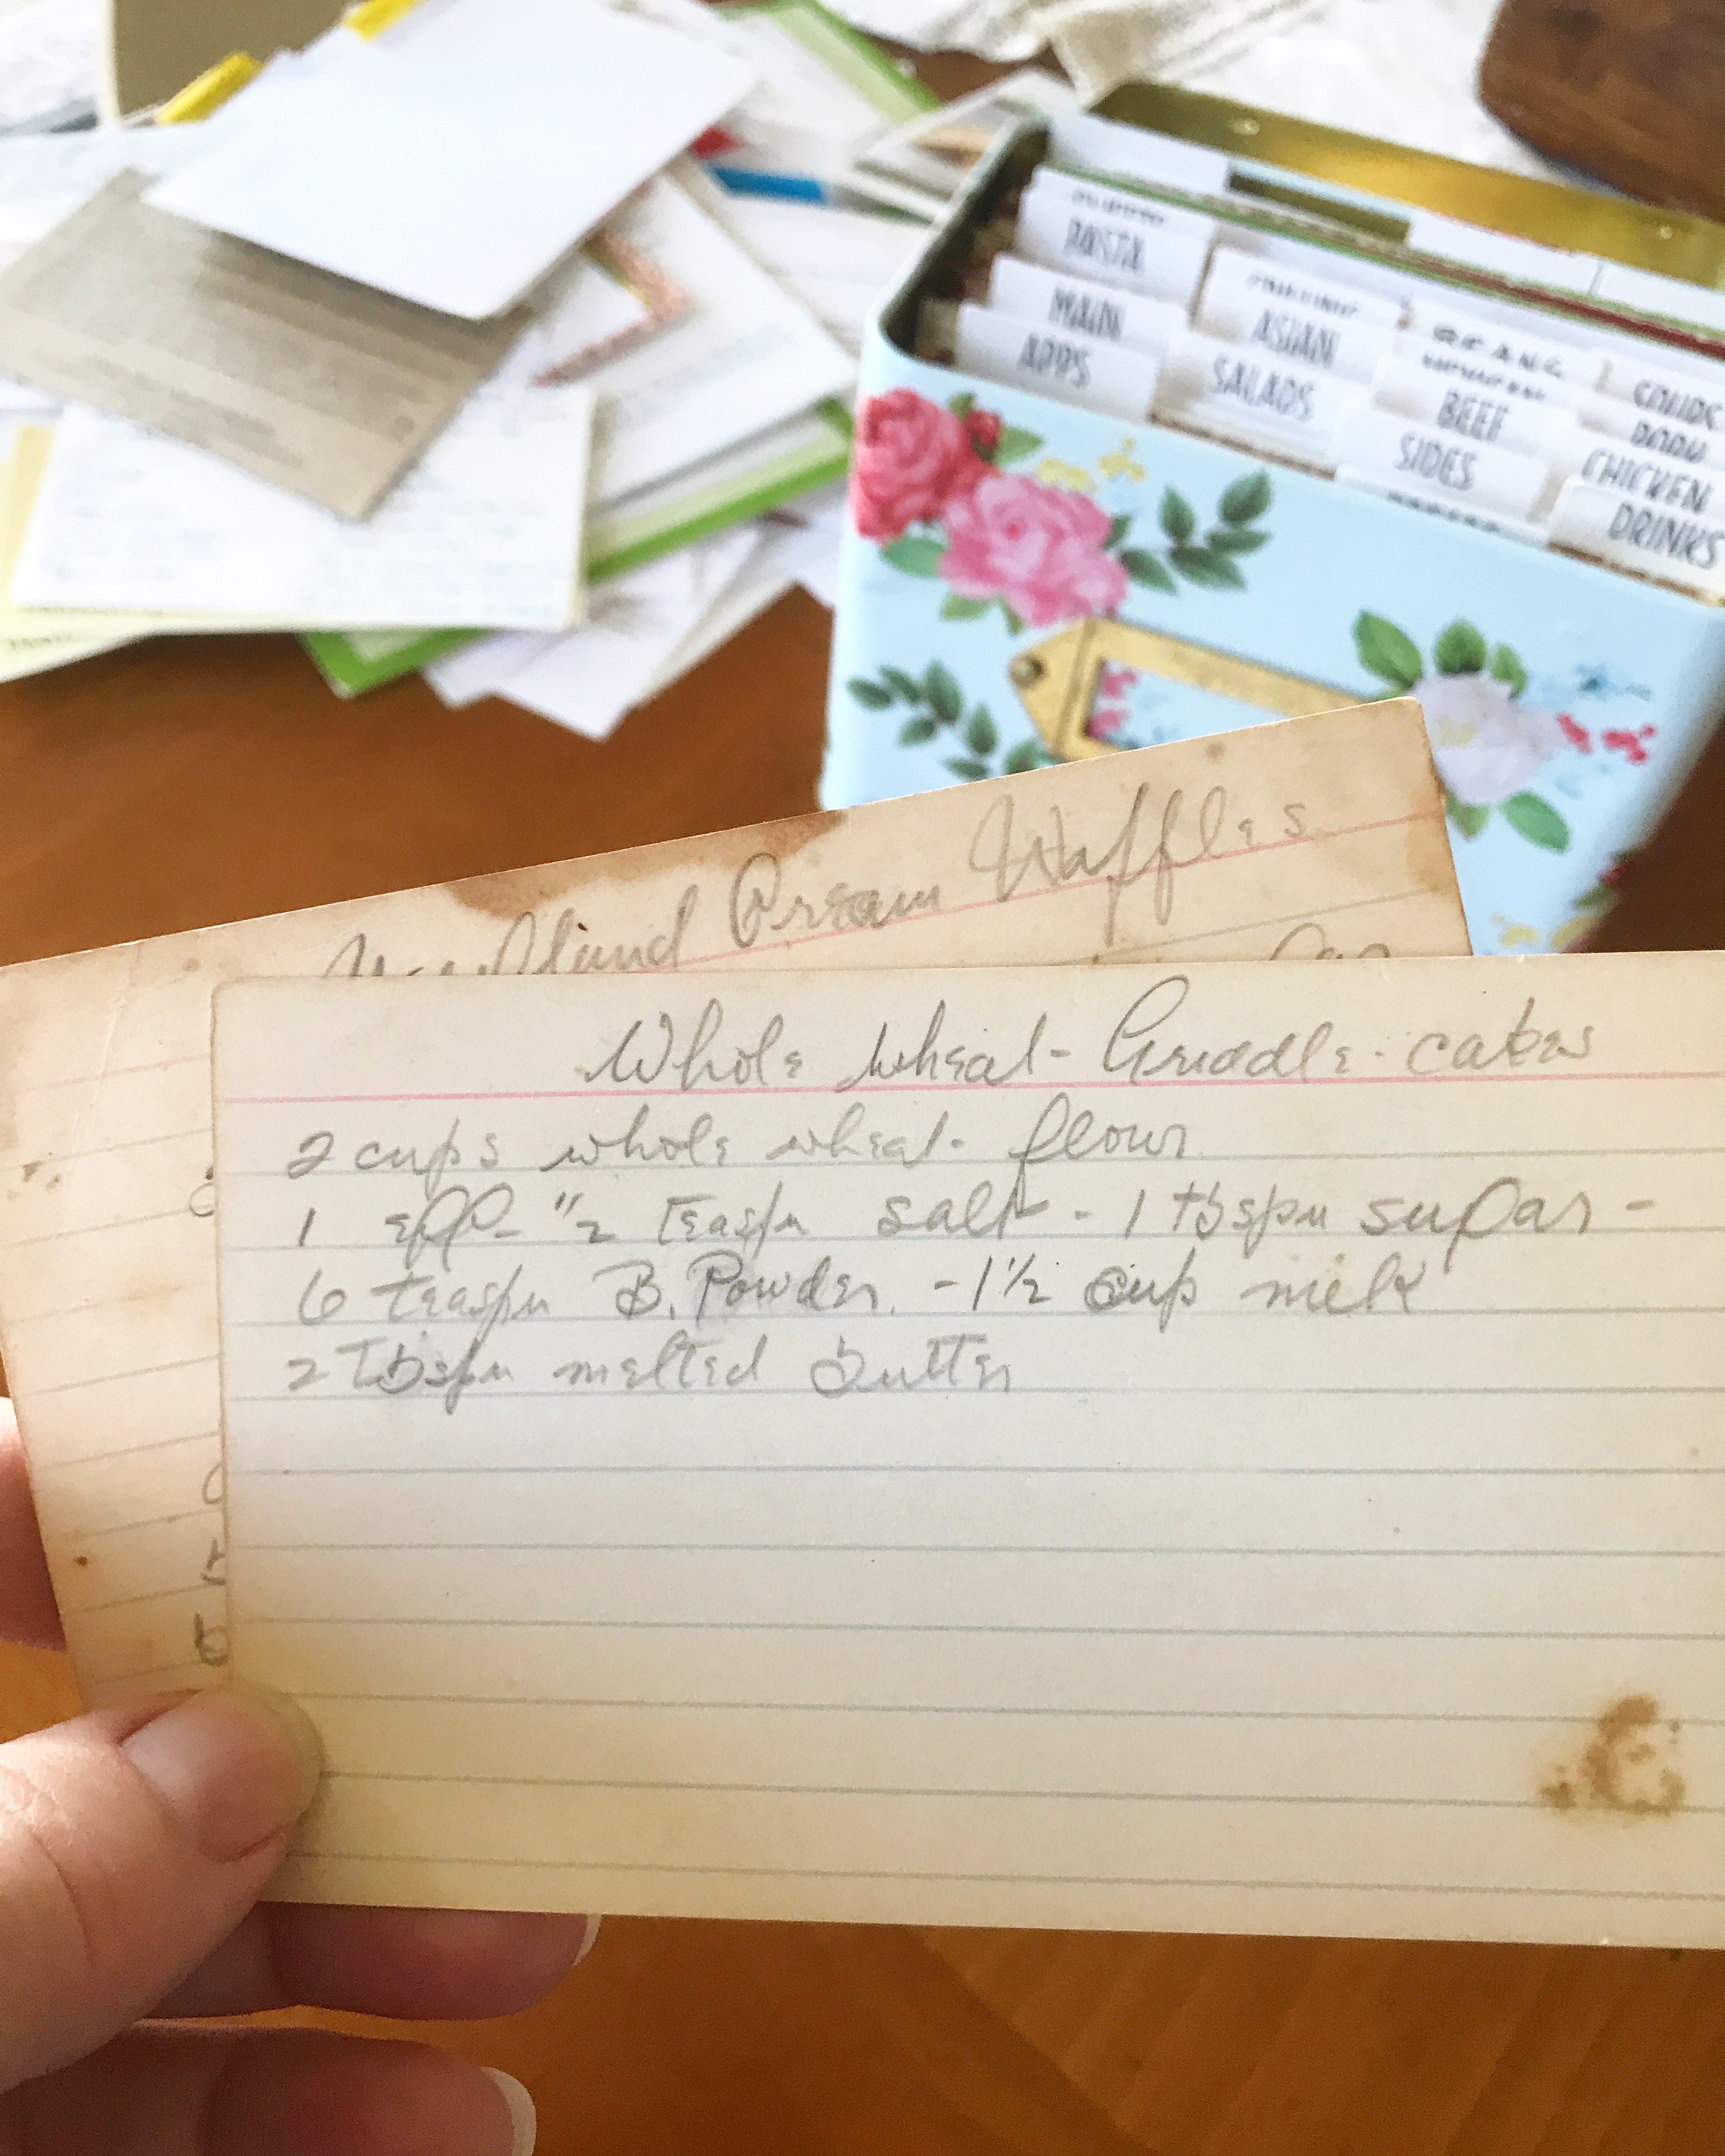 PASTA
MAIN
ASIAN
APPS
SALADS
BEEF
SIDES
CHICKEN
DRINKS
Cream Waffles
Whole wheat Griddle-cakes
2 cups whole wheat flour
1 egg - 1/2 teaspn salt - 1 tbspn sugar -
6 teaspn B. Powder. - 1 1/2 cup milk
2 Tbspn melted butter